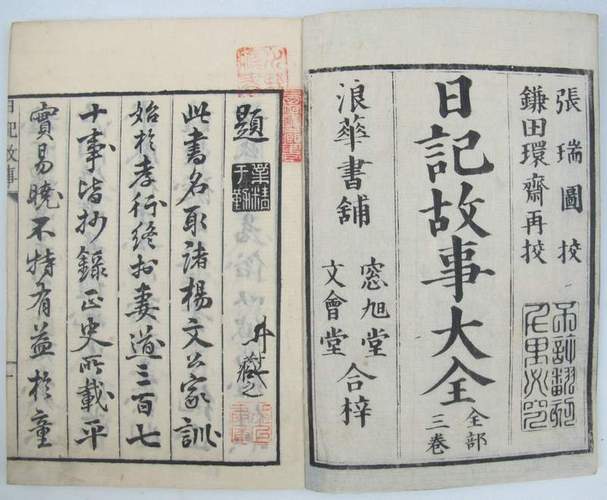 張瑞圖校
鎌田環齋再挍
日記故事大全
全部
三巻
浪華書舗
窓旭堂
文會堂
合梓
題
此書名取諸楊文公家訓
始於孝行終於妻道三百七
十事皆抄録正史所載平
實易曉不特有益於童
日記故事